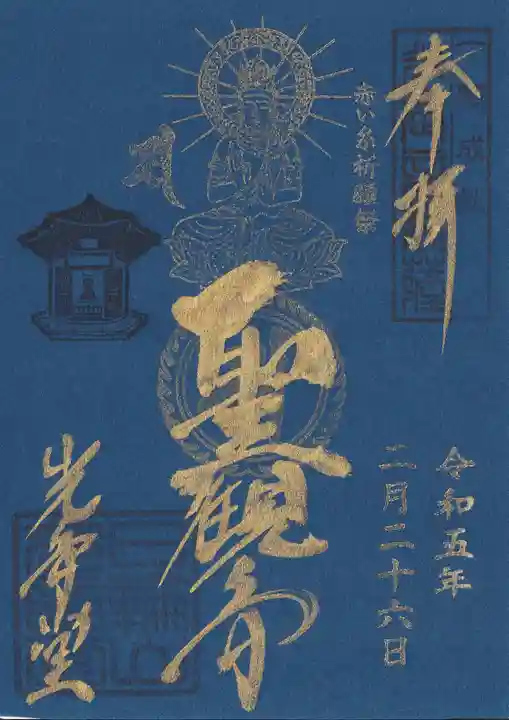 奉拝
赤い糸祈願祭
令和五年
二月二十六日
聖観音